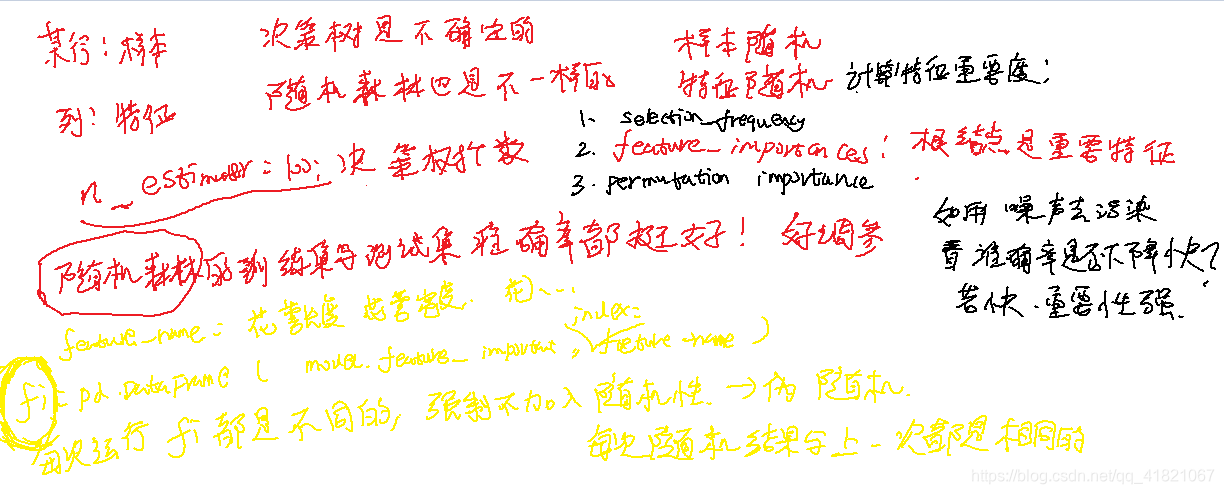 某行：样本
列：特征
决策树是不确定的
随机森林也是不一样的
样本随机
特征随机
计算特征重要度：
1、selection_frequency
2. feature_importances：根结点是重要特征
3. permutation importance
n_estimator=100；决策树个数
随机森林的训练集与测试集准确率都挺好！好调参
如用噪声去污染
看准确率是否下降快？
若快．重要性强．
feature_name = 花萼长度 花萼宽度．花、...
fi = pd.DataFrame ( model.feature_important, index= feature_name )
每次运行 fi 都是不同的，强制不加入随机性．→伪随机．
每次随机结果与上一次都是相同的
https://blog.csdn.net/qq_41821067